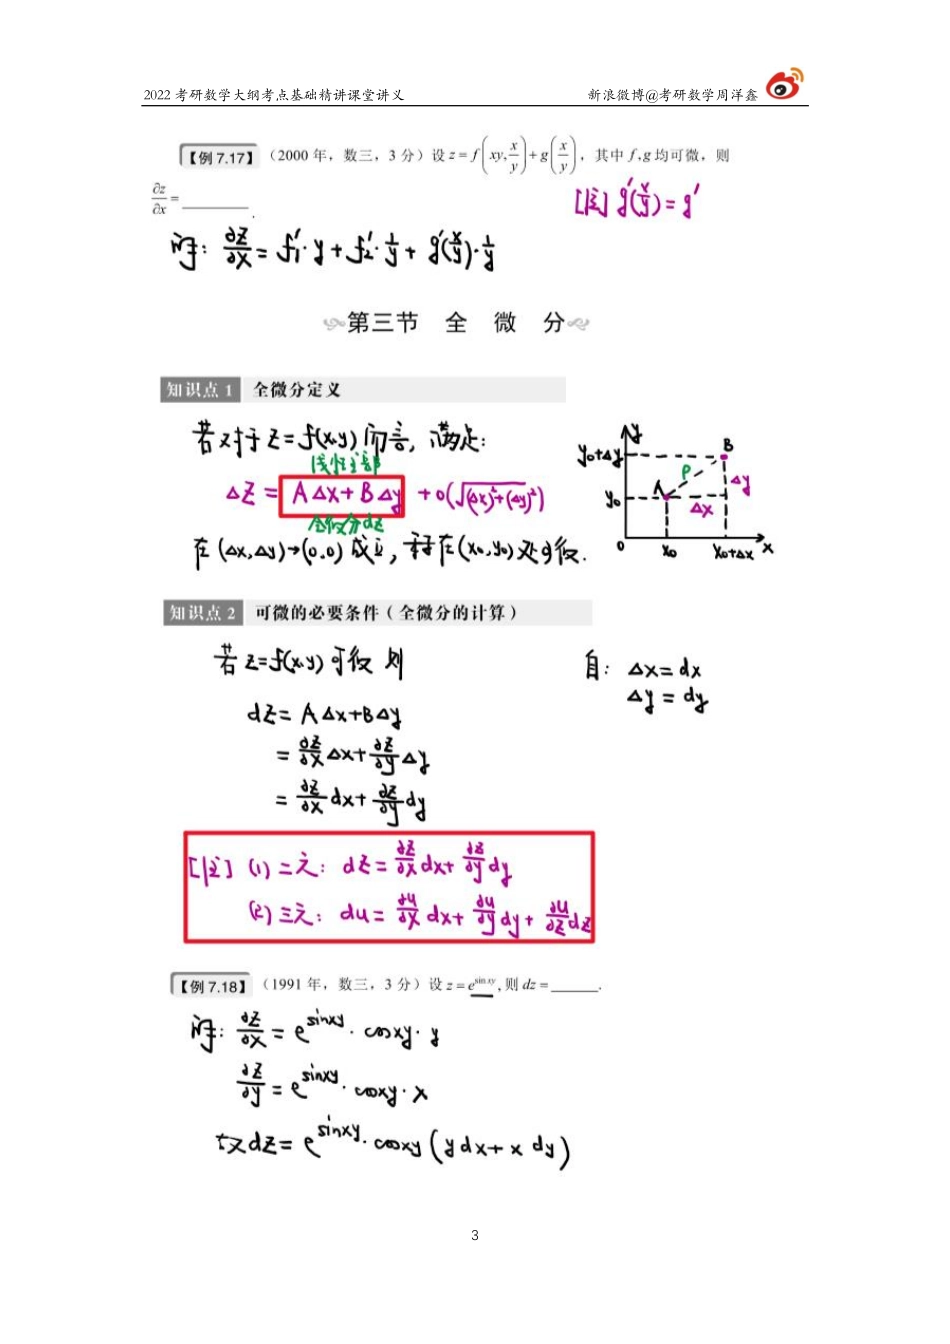 2022 考研数学大纲考点基础精讲课堂讲义 新浪微博@考研数学周洋鑫
【例 7.17】（2000 年，数三，3 分）设 z = f(xy, x/y) + g(x/y)，其中 f,g 均可微，则
∂z/∂x = ________.
[注] g'(x/y) = g'
解: ∂z/∂x = f₁'·y + f₂'·1/y + g'(x/y)·1/y
第三节 全 微 分
知识点 1 全微分定义
若对于 z = f(x,y) 而言, 满足:
线性主部
ΔZ = AΔx + BΔy + o(√((Δx)²+(Δy)²))
全微分dz
在 (Δx,Δy)→(0,0) 成立, 称在(x₀,y₀)处可微.
y
y₀+Δy
B
ρ
Δy
y₀
A
Δx
0
x₀
x₀+Δx
x
知识点 2 可微的必要条件（全微分的计算）
若 z=f(x,y) 可微 则
自: Δx = dx
Δy = dy
dz = AΔx + BΔy
= ∂z/∂x Δx + ∂z/∂y Δy
= ∂z/∂x dx + ∂z/∂y dy
[注] (1) 二元: dz = ∂z/∂x dx + ∂z/∂y dy
(2) 三元: du = ∂u/∂x dx + ∂u/∂y dy + ∂u/∂z dz
【例 7.18】（1991 年，数三，3 分）设 z = e^{sin xy}, 则 dz = ______.
解: ∂z/∂x = e^{sinxy}·cosxy·y
∂z/∂y = e^{sinxy}·cosxy·x
故 dz = e^{sinxy}·cosxy (ydx + x dy)
3